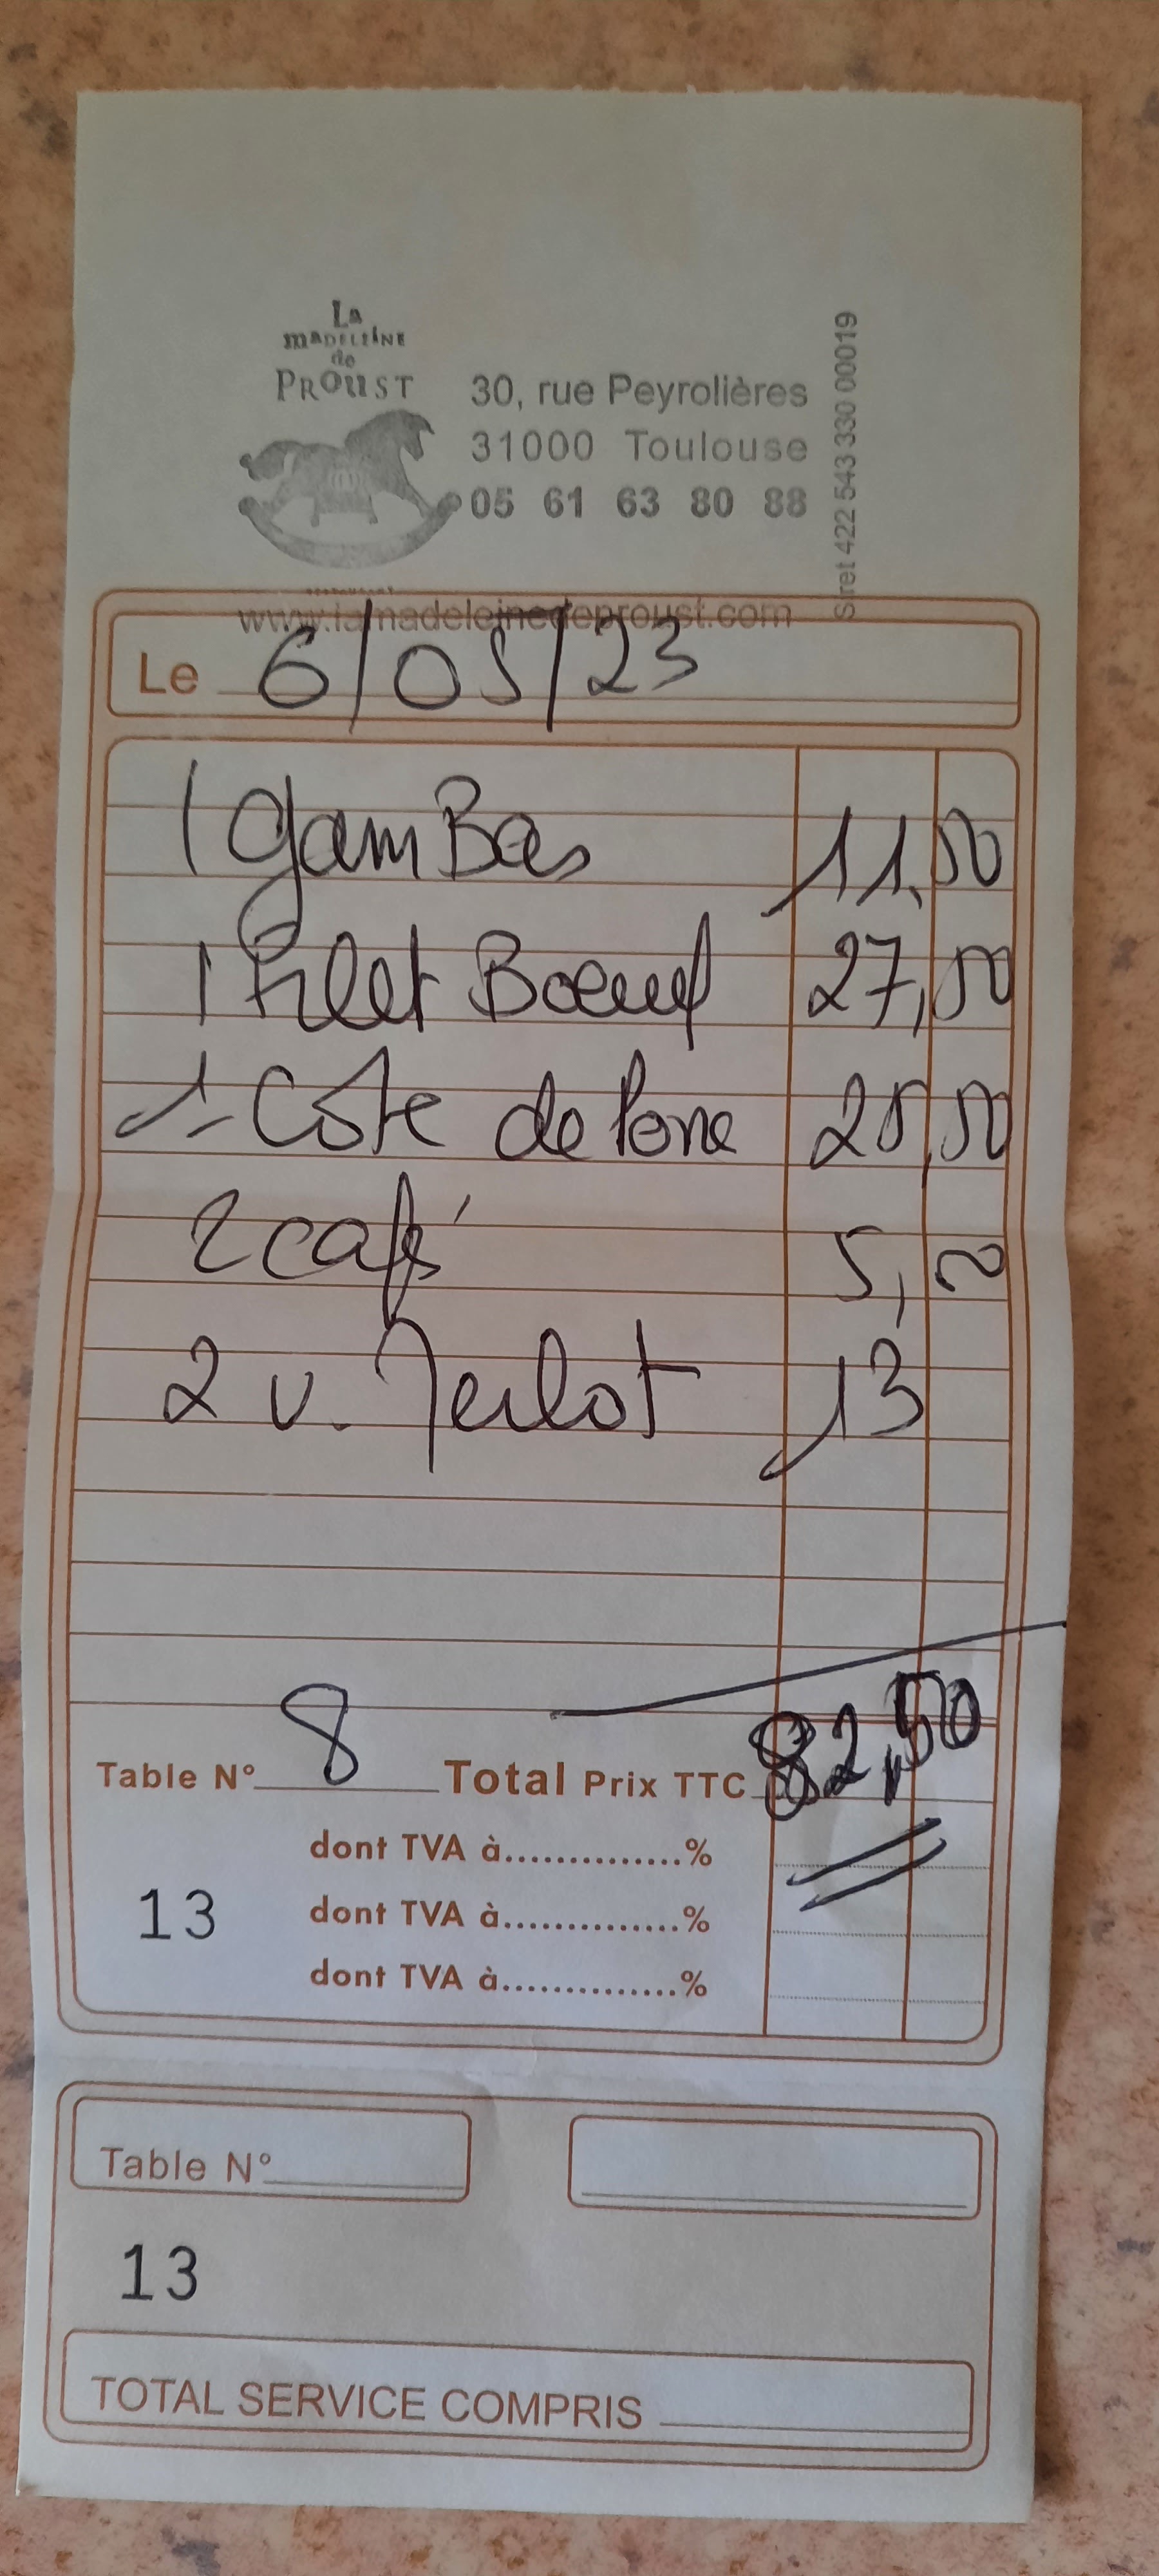 La
MADELEINE
de
PROUST
30, rue Peyrolières
31000 Toulouse
05 61 63 80 88
Siret 422 543 330 00019
www.lamadeleinedeproust.com
Le 6/05/23
1 GamBas 11,50
1 Filet Boeuf 27,50
1 Côte de Porc 25,50
2 café 5,00
2 v. Merlot 13
Table N° 8 Total Prix TTC 82,50
dont TVA à..............%
13 dont TVA à..............%
dont TVA à..............%
Table N°
13
TOTAL SERVICE COMPRIS